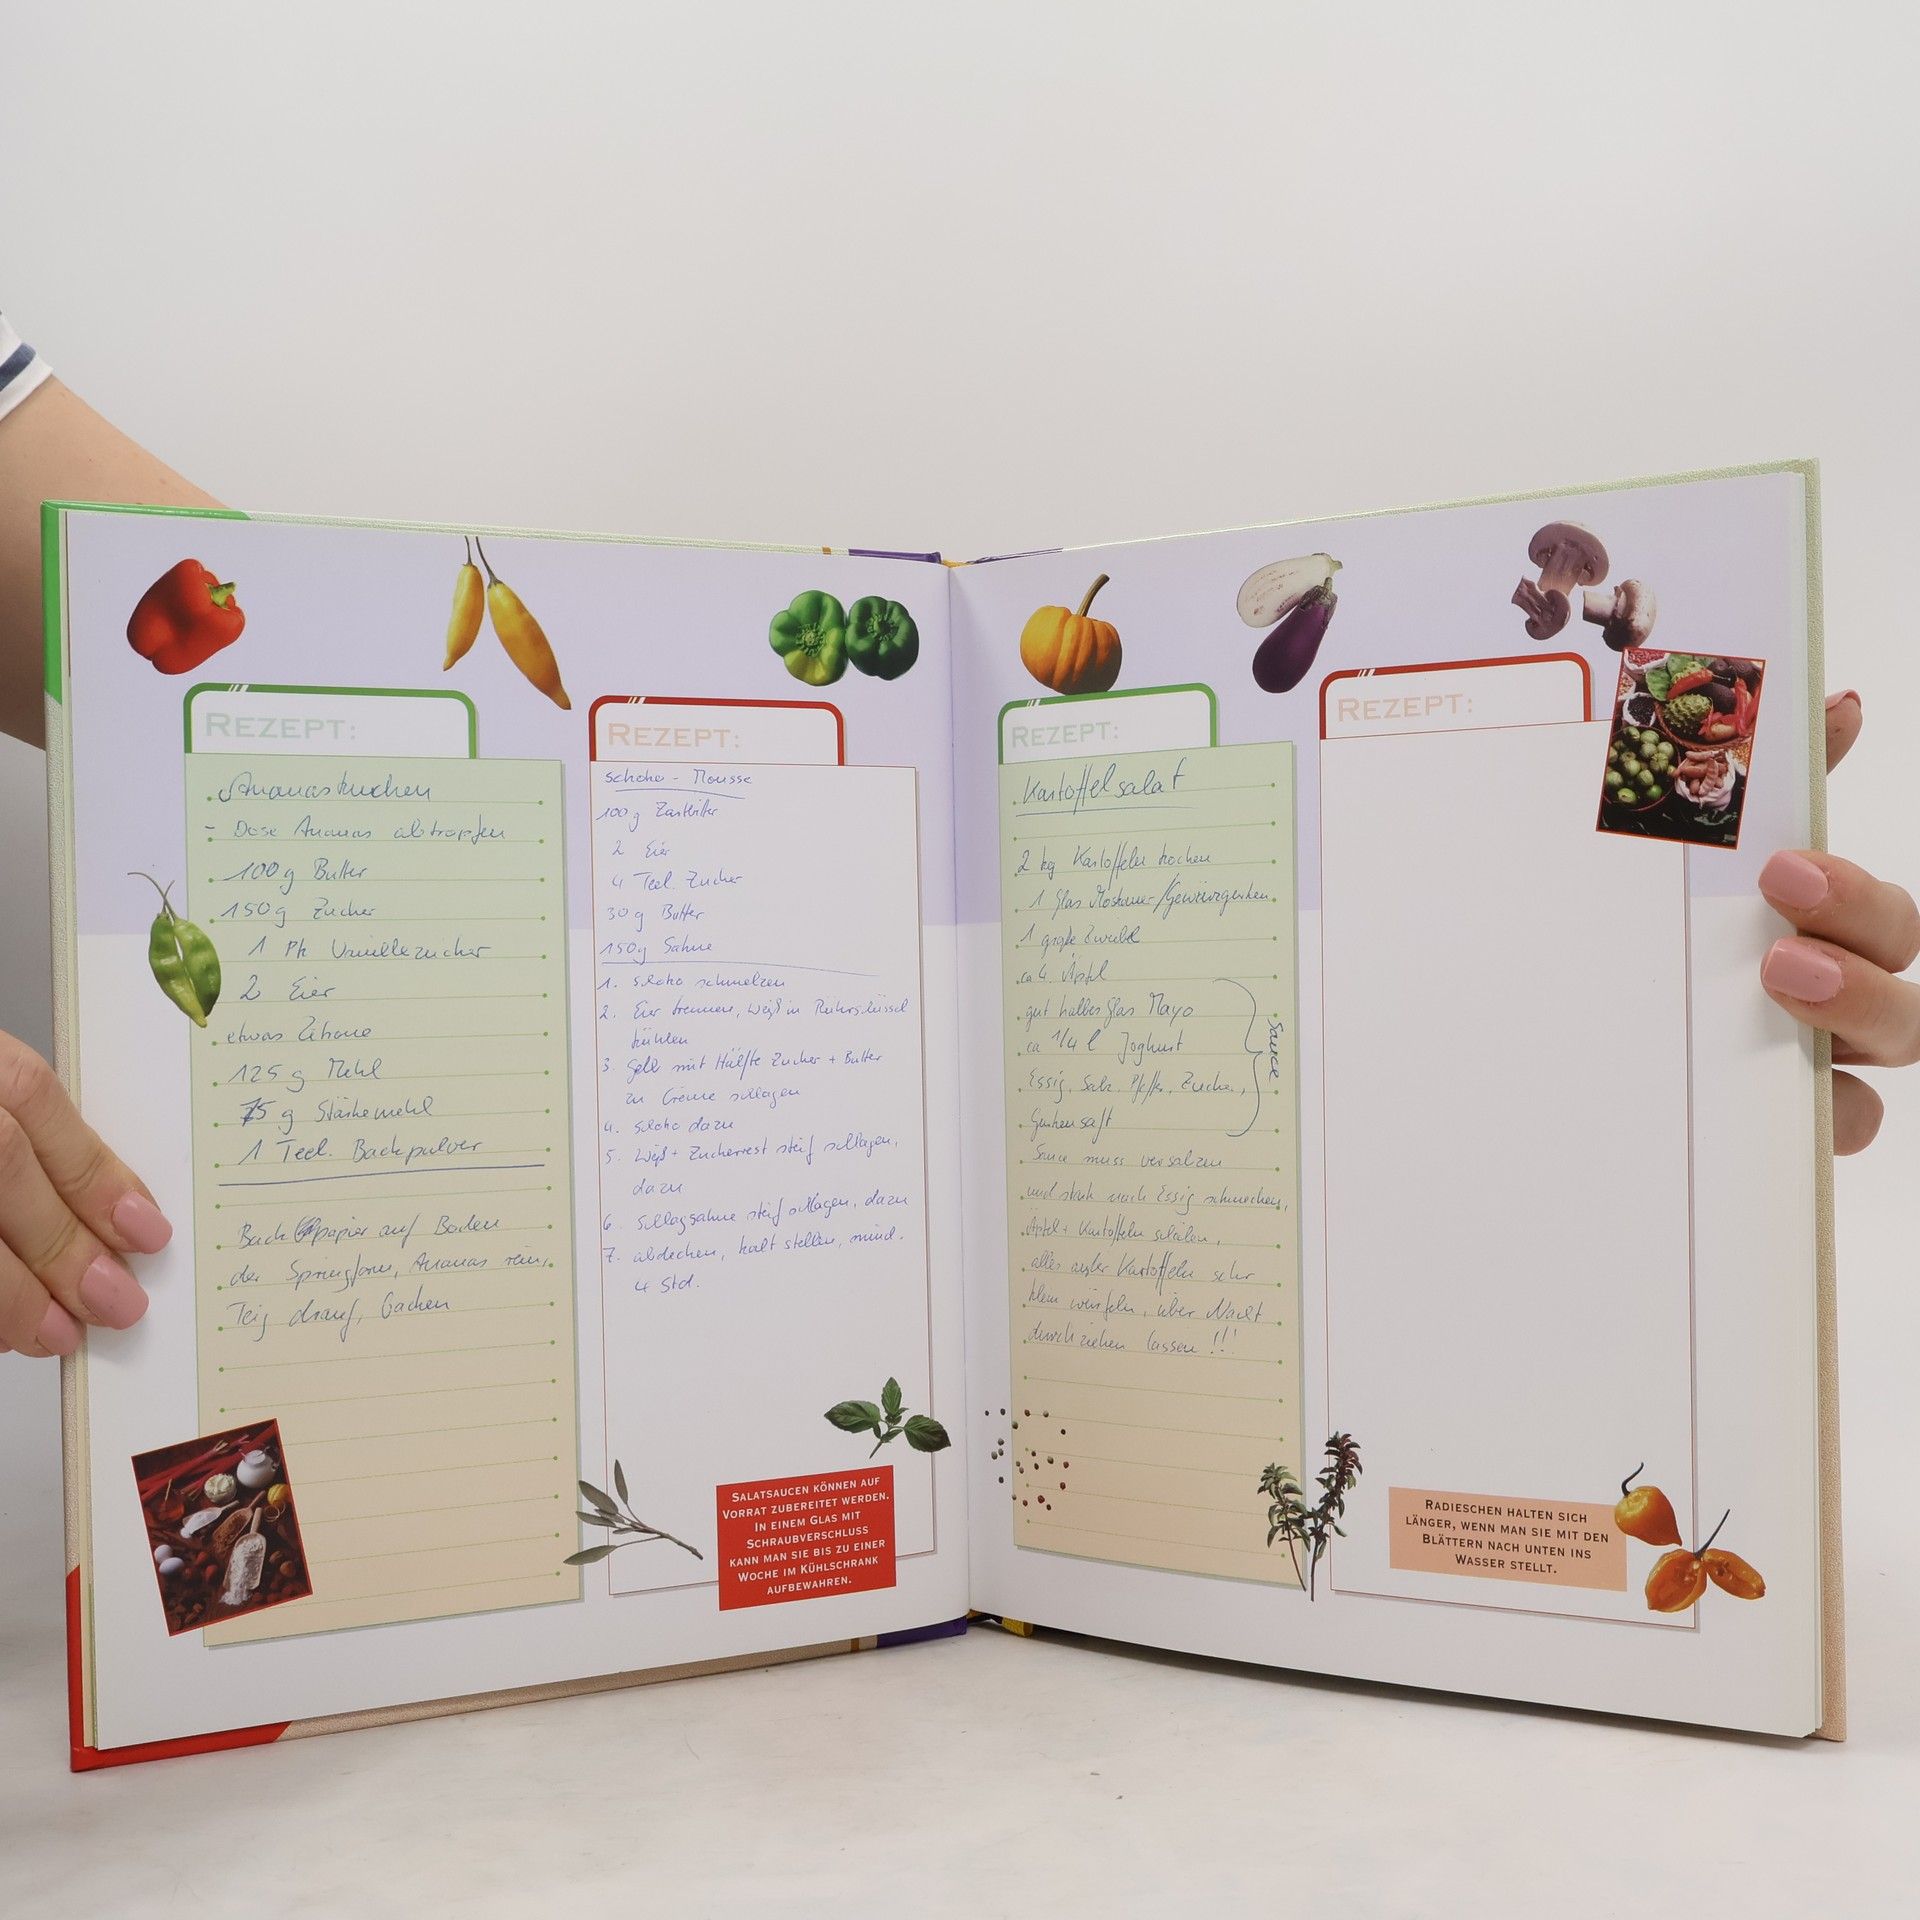 REZEPT:
Ananaskuchen
- Dose Ananas abtropfen
100g Butter
150g Zucker
1 Pk Vanillezucker
2 Eier
etwas Zitrone
125 g Mehl
75 g Stärkemehl
1 Teel. Backpulver
Back papier auf Boden
der Springform, Ananas rein,
Teig drauf, backen
REZEPT:
Schoko - Mousse
100g Zartbitter
2 Eier
4 Teel. Zucker
30g Butter
150g Sahne
1. Schoko schmelzen
2. Eier trennen, Weiß in Rührschüssel
kühlen
3. Gelb mit Hälfte Zucker + Butter
zu Creme schlagen
4. Schoko dazu
5. Weiß + Zuckerrest steif schlagen,
dazu
6. Schlagsahne steif schlagen, dazu
7. abdecken, kalt stellen, mind.
4 Std.
SALATSAUCEN KÖNNEN AUF
VORRAT ZUBEREITET WERDEN.
IN EINEM GLAS MIT
SCHRAUBVERSCHLUSS
KANN MAN SIE BIS ZU EINER
WOCHE IM KÜHLSCHRANK
AUFBEWAHREN.
REZEPT:
Kartoffelsalat
2 kg Kartoffeln kochen
1 Glas Moskauer/Gewürzgurken
1 große Zwiebel
ca 4. Äpfel
gut halbes Glas Mayo
ca 1/4 l Joghurt
Essig, Salz, Pfeffer, Zucker,
Gurkensaft
Sauce
Sauce muss versalzen
und stark nach Essig schmecken,
Äpfel + Kartoffeln schälen,
alles außer Kartoffeln sehr
klein würfeln, über Nacht
durchziehen lassen !!!
REZEPT:
RADIESCHEN HALTEN SICH
LÄNGER, WENN MAN SIE MIT DEN
BLÄTTERN NACH UNTEN INS
WASSER STELLT.